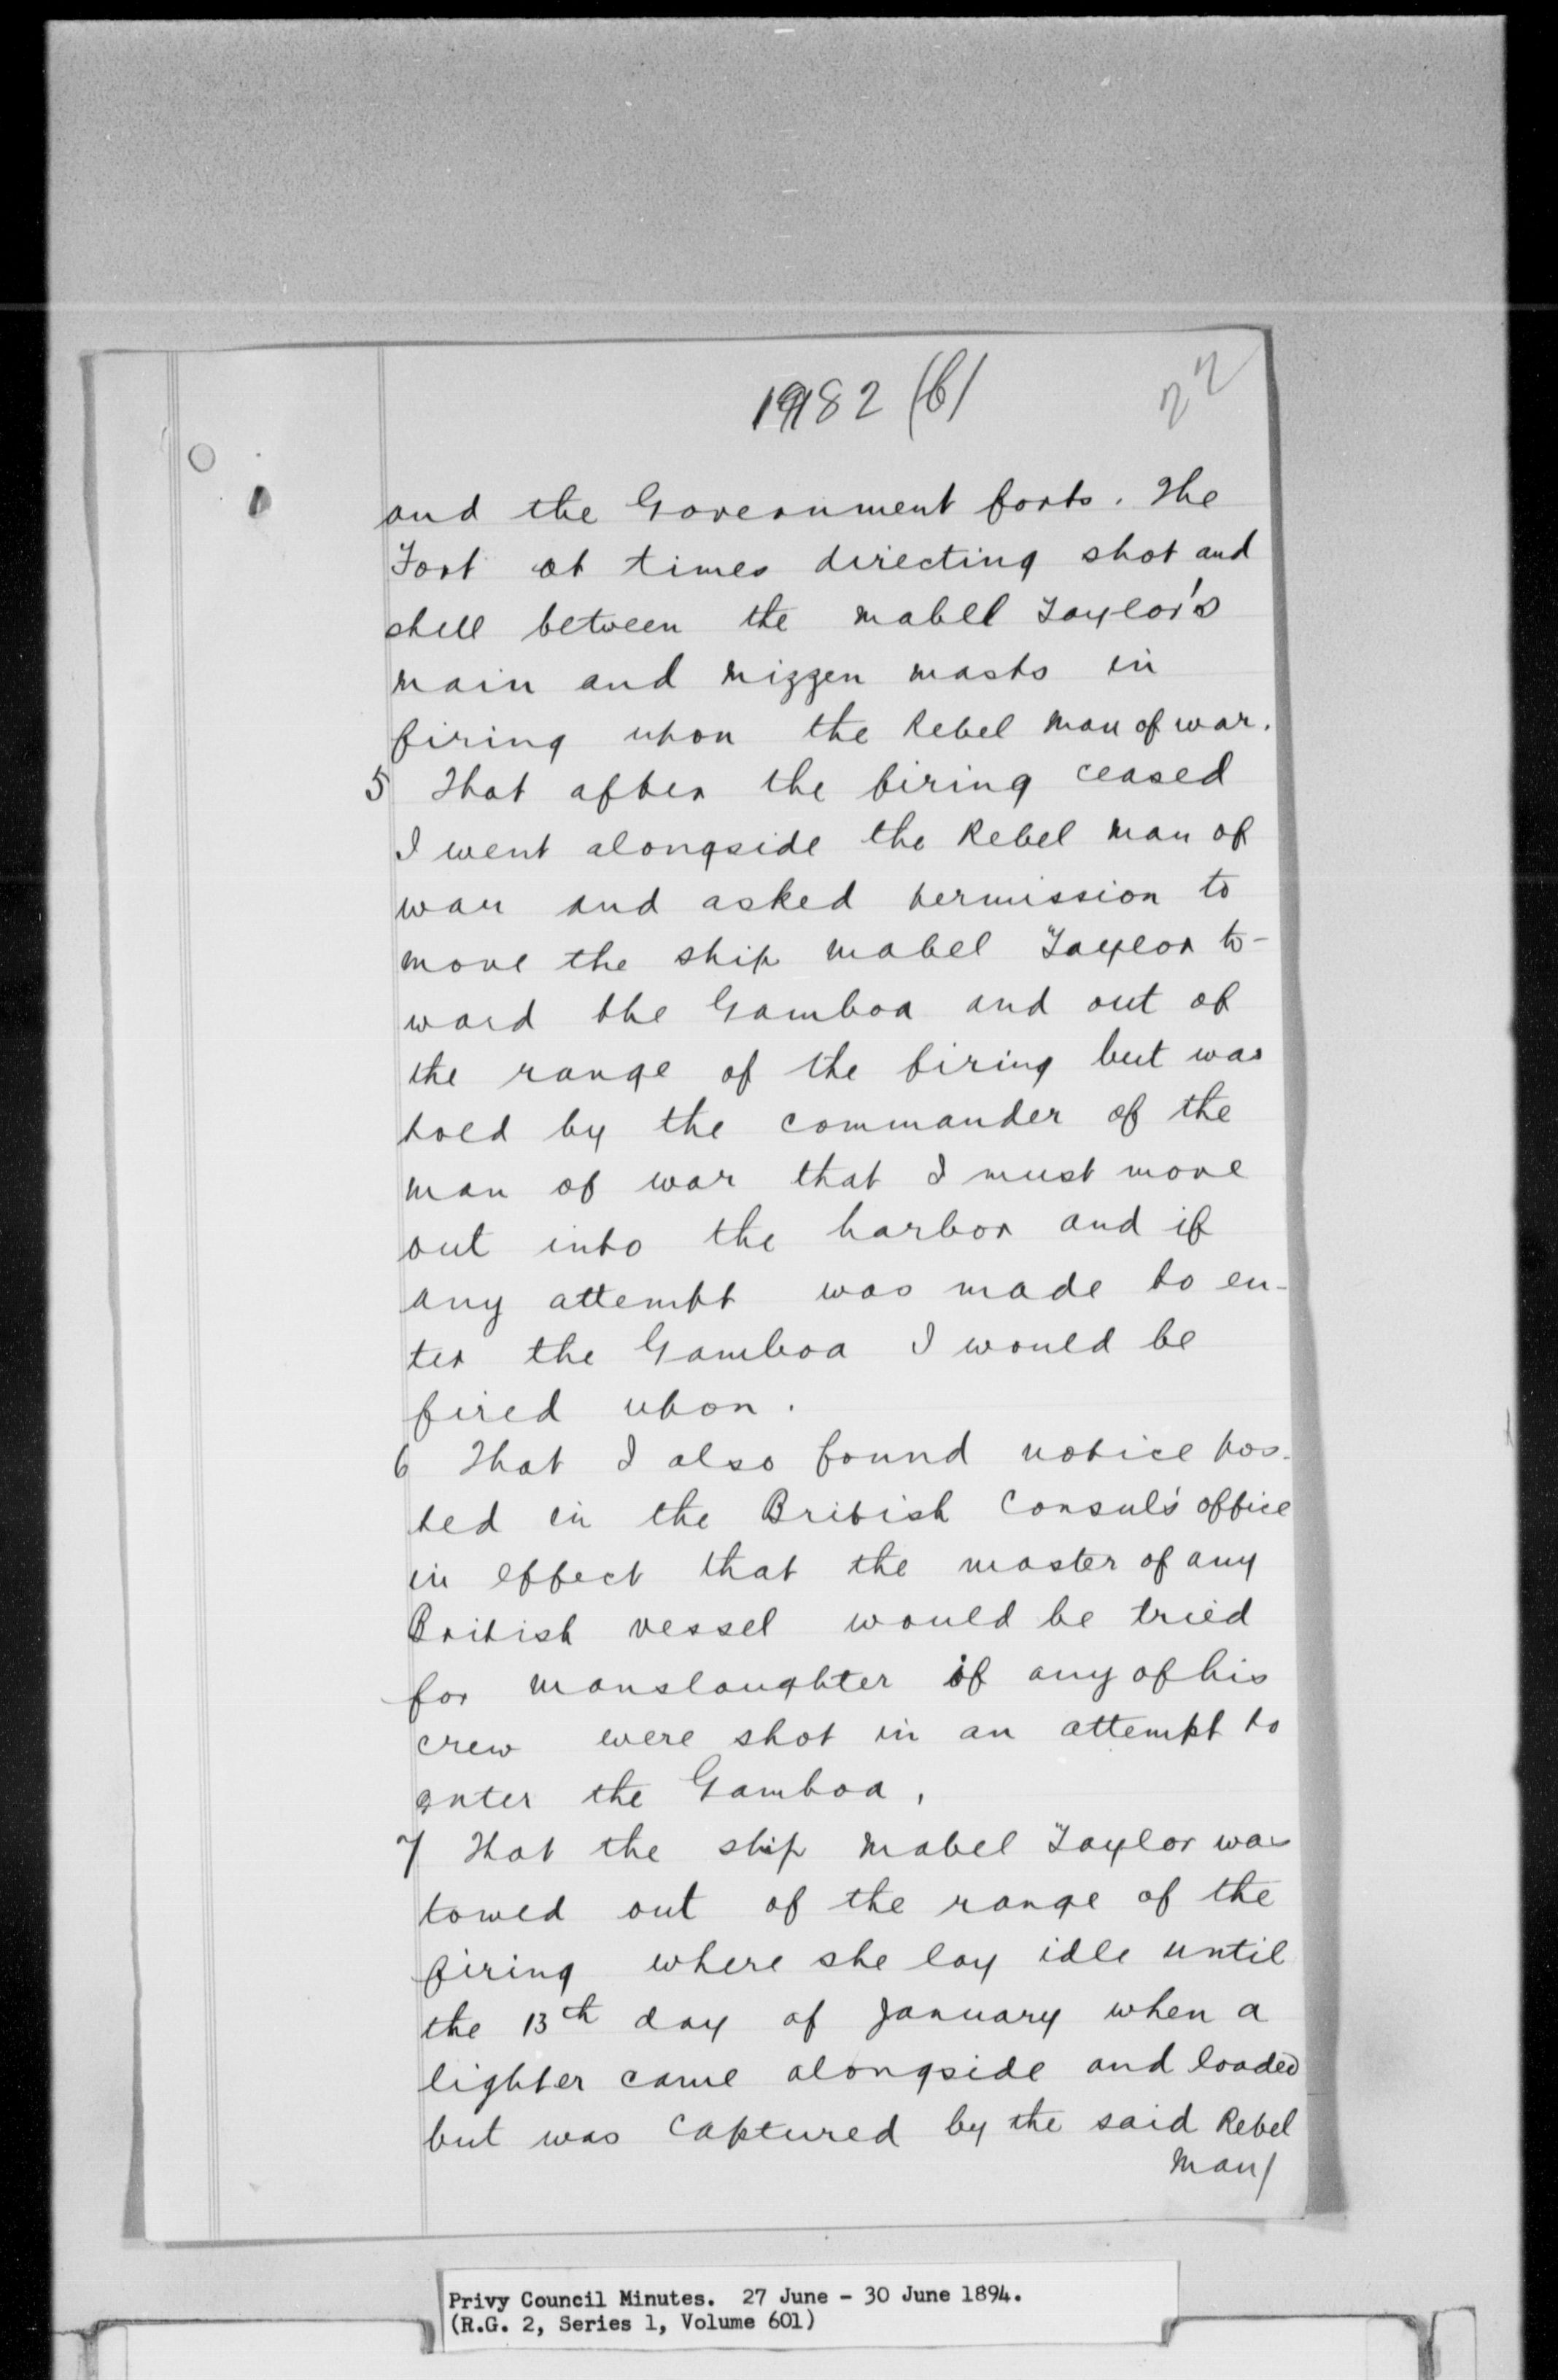 1982 (b)
22
and the Government forts. The
Fort at times directing shot and
shell between the Mabel Taylor's
main and mizzen masts in
firing upon the Rebel Man of war.
5 That after the firing ceased
I went alongside the Rebel Man of
war and asked permission to
move the ship Mabel Taylor to-
ward the Gamboa and out of
the range of the firing but was
told by the commander of the
man of war that I must move
out into the harbor and if
any attempt was made to en-
ter the Gamboa I would be
fired upon.
6 That I also found notice pos-
ted in the British Consul's office
in effect that the master of any
British vessel would be tried
for manslaughter if any of his
crew were shot in an attempt to
enter the Gamboa,
7 That the ship Mabel Taylor was
towed out of the range of the
firing where she lay idle until
the 13th day of January when a
lighter came alongside and loaded
but was captured by the said Rebel
Man/
Privy Council Minutes. 27 June - 30 June 1894.
(R.G. 2, Series 1, Volume 601)